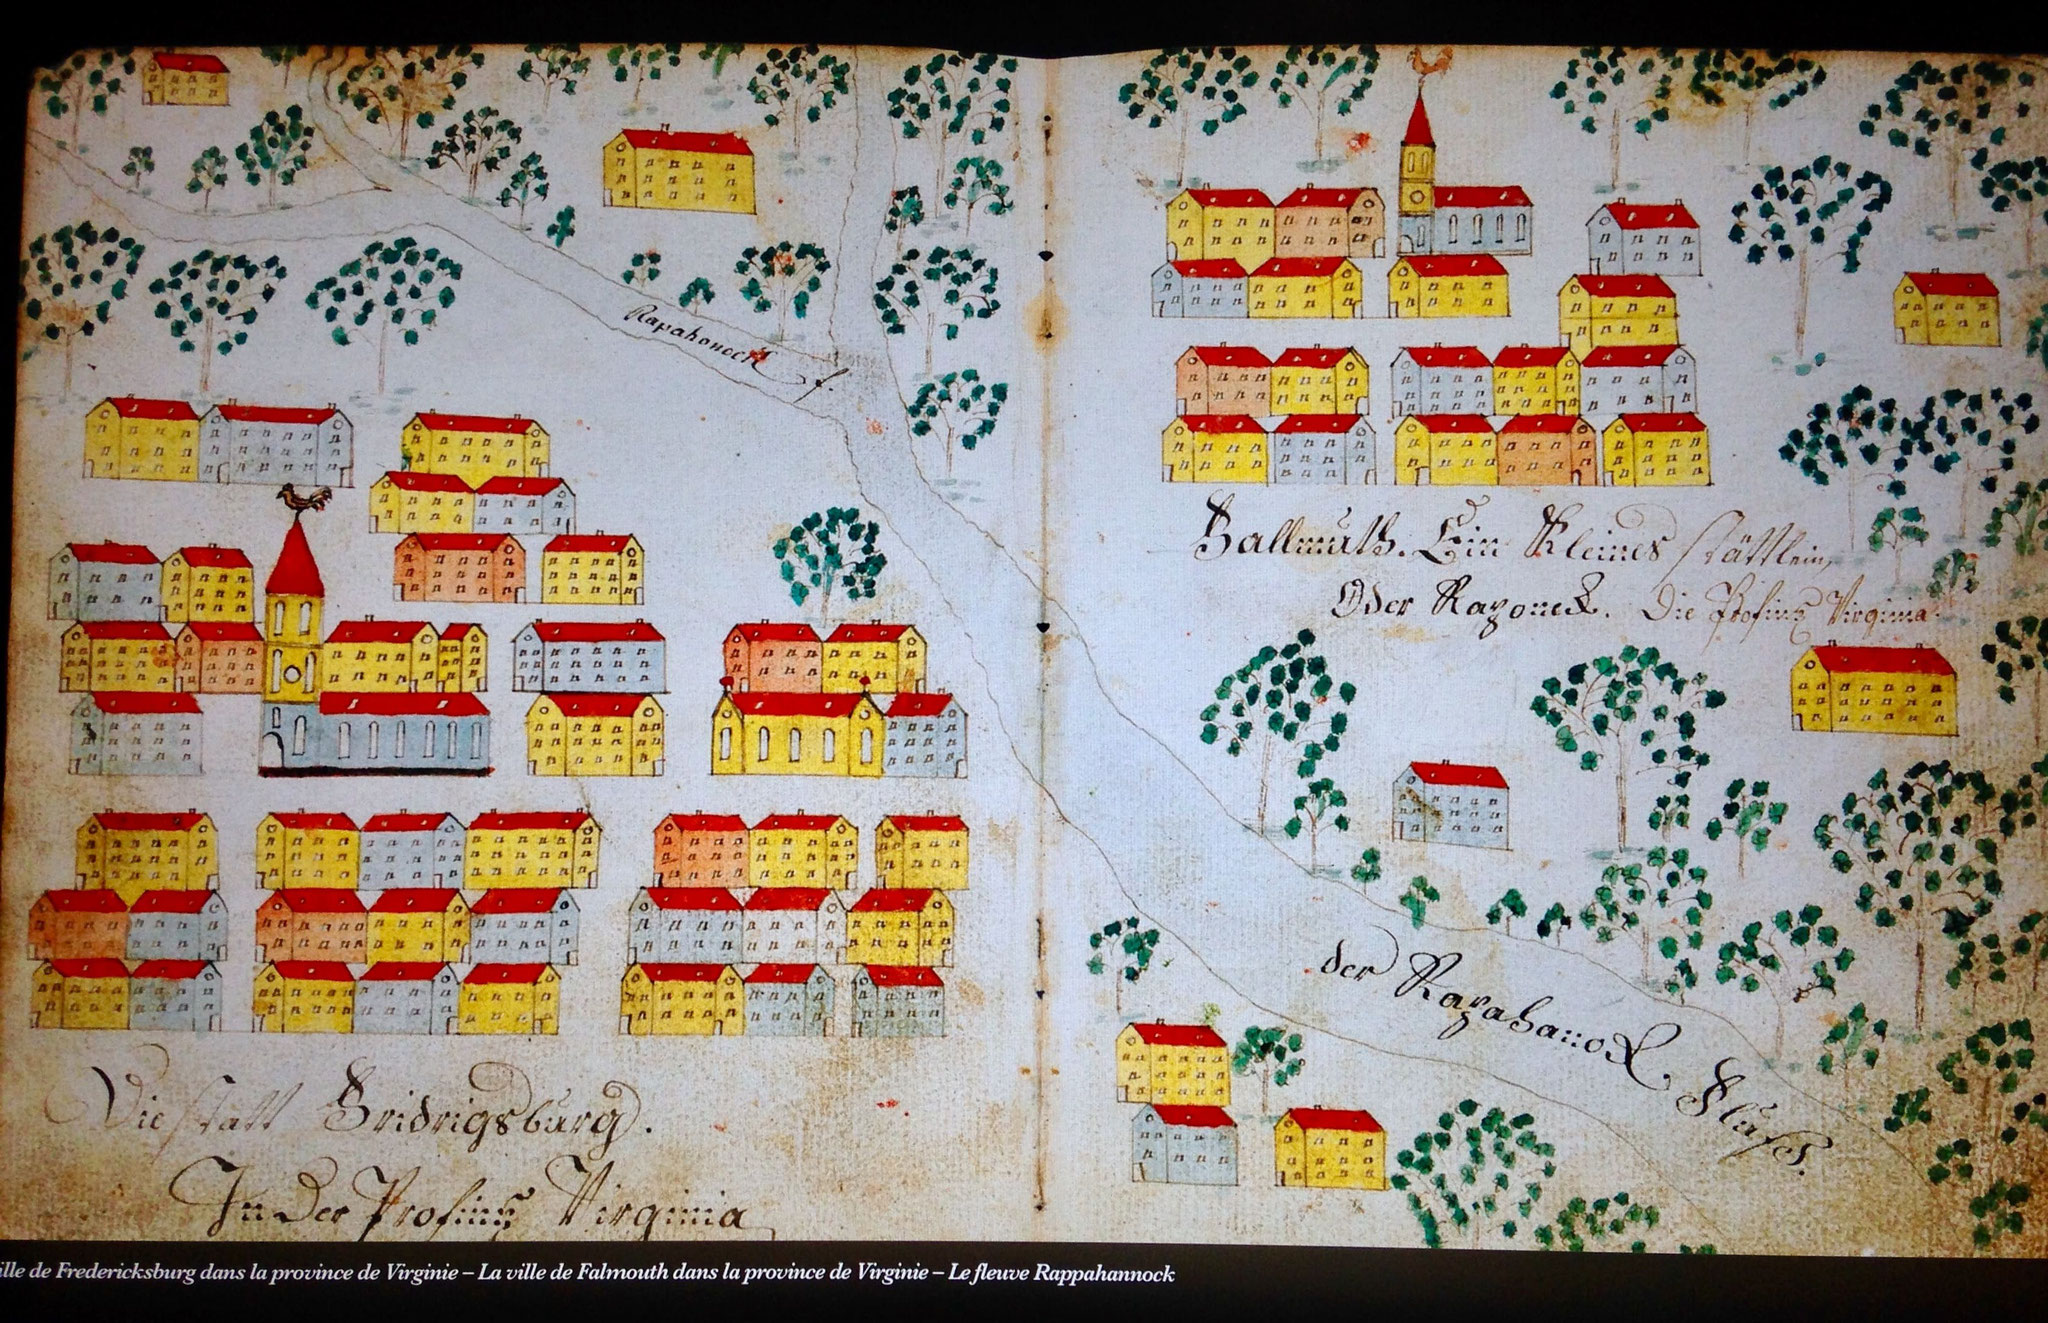 Rapahoneck f.
Die statt Fridrigsburg.
In der Profinz Virginia
Fallmuth. Ein Kleines stättlein,
Oder Raponeck. Die Profinz Virginia.
der Rapahanock Fluss.
ille de Fredericksburg dans la province de Virginie – La ville de Falmouth dans la province de Virginie – Le fleuve Rappahannock